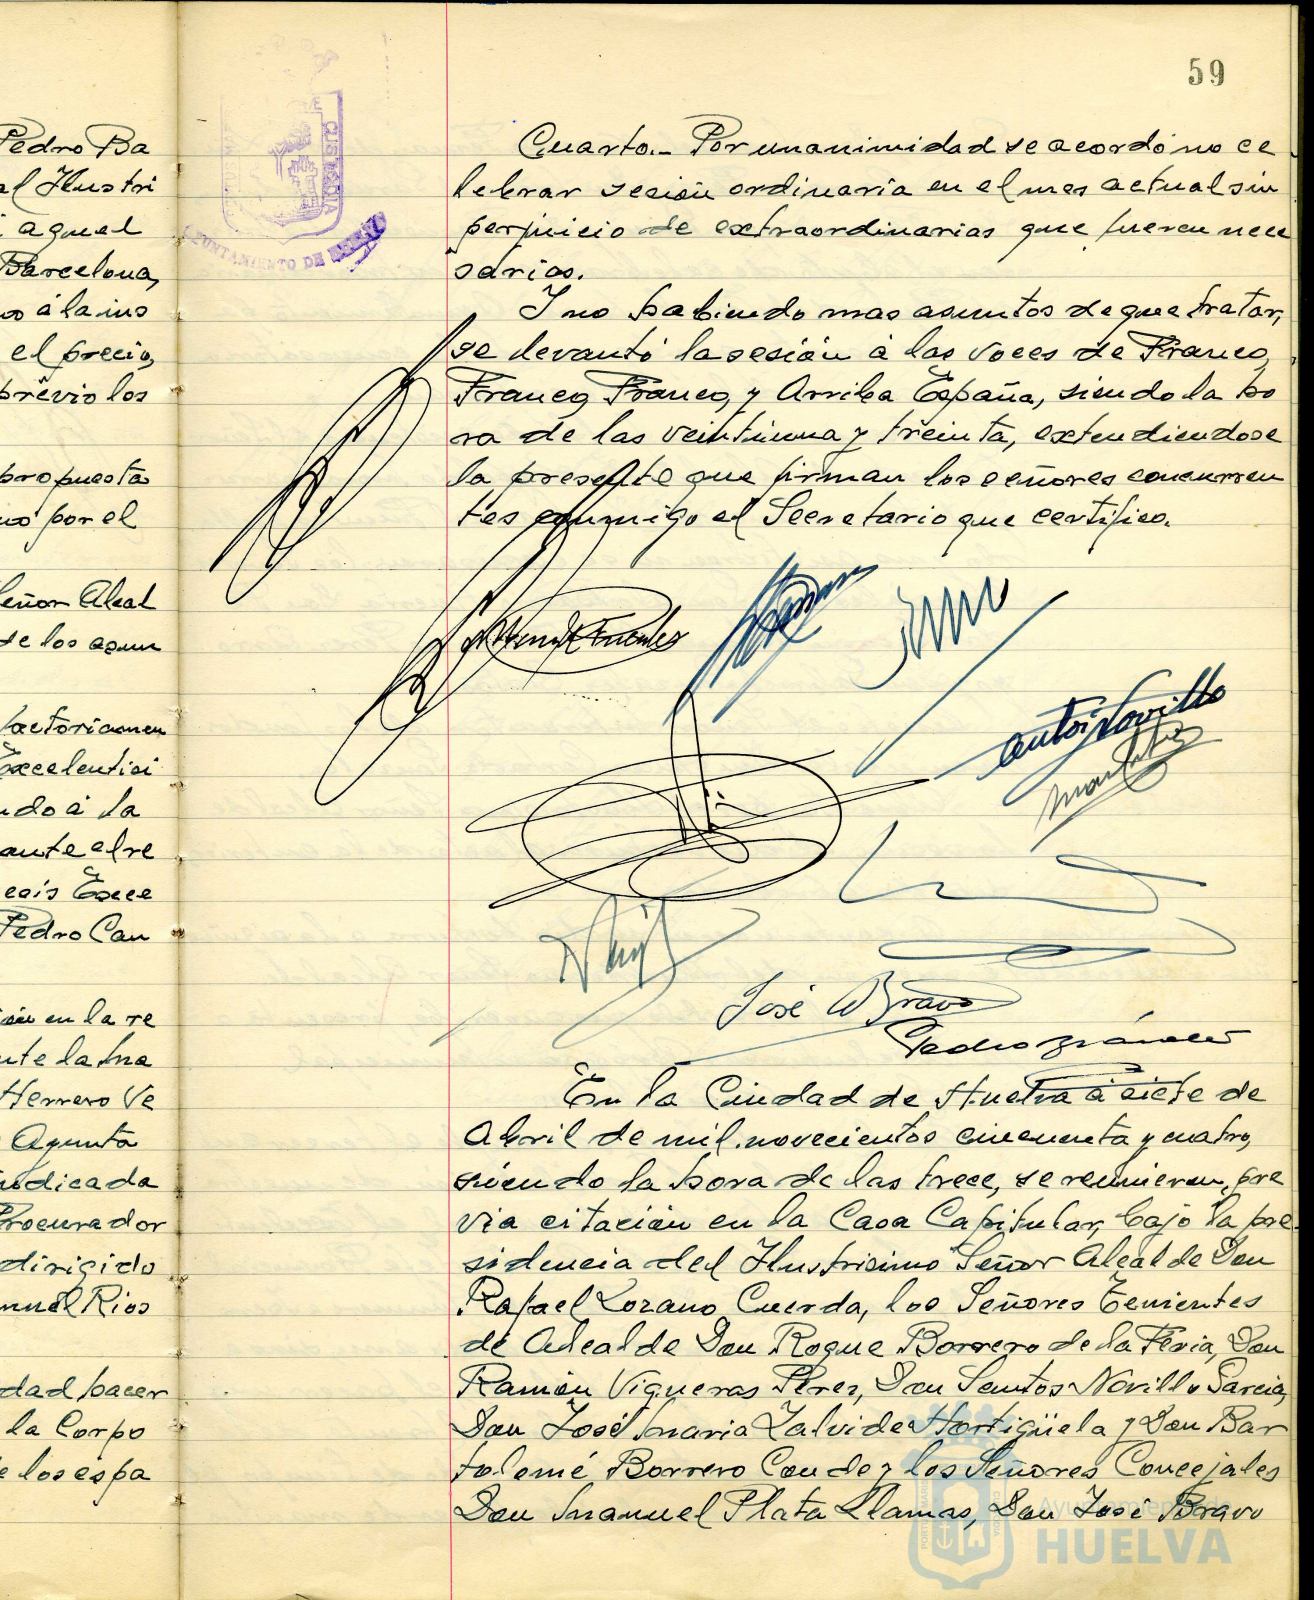 59
Pedro Ba
al Ilustri
aquel
Barcelona,
á la ins
el precio,
prévio los
propuesta
por el
Señor Alcal
de los asun
factoriamen
Excelentisi
ndo á la
ante el re
Exce
Pedro Can
en la re
nte la Ma
Herrero Ve
Agunta
ndicada
Procurador
dirigido
nuel Rios
dad hacer
la Corpo
e los espa
AYUNTAMIENTO DE HUELVA
Cuarto.- Por unanimidad se acordó no ce
lebrar sesión ordinaria en el mes actual sin
perjuicio de extraordinarias que fueren nece
sarias.
Y no habiendo mas asuntos de que tratar,
se levantó la sesión á las voces de Franco,
Franco, Franco, y Arriba España, siendo la ho
ra de las veintiuna y treinta, extendiendose
la presente que firman los señores concurren
tes conmigo el Secretario que certifico.
José Bravo
En la Ciudad de Huelva á siete de
Abril de mil novecientos cincuenta y cuatro,
siendo la hora de las trece, se reunieron, pre
via citación en la Casa Capitular, bajo la pre
sidencia del Ilustrisimo Señor Alcalde Don
Rafael Lozano Cuerda, los Señores Tenientes
de Alcalde Don Roque Borrero de la Feria, Don
Ramón Vigueras Pérez, Don Santos Novillo Garcia,
Don José Maria Zalvide Hortigüela y Don Bar
tolomé Borrero Conde y los Señores Concejales
Don Manuel Plata Llamas, Don José Bravo
Ayuntamiento de
HUELVA